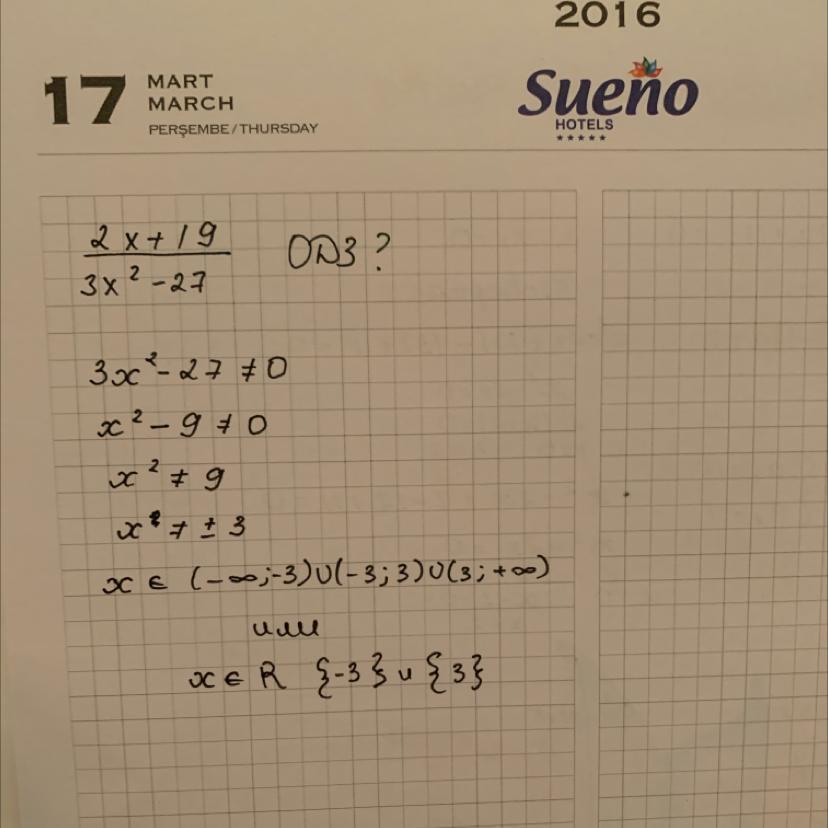 2016
17 MART
MARCH
PERŞEMBE/THURSDAY
Sueño
HOTELS
2x+19
3x² -27
ОДЗ?
3x²-27 ≠0
x²-9≠0
x²≠9
x ≠±3
x ∈ (-∞;-3)∪(-3;3)∪(3;+∞)
или
x∈R {-3} ∪ {3}